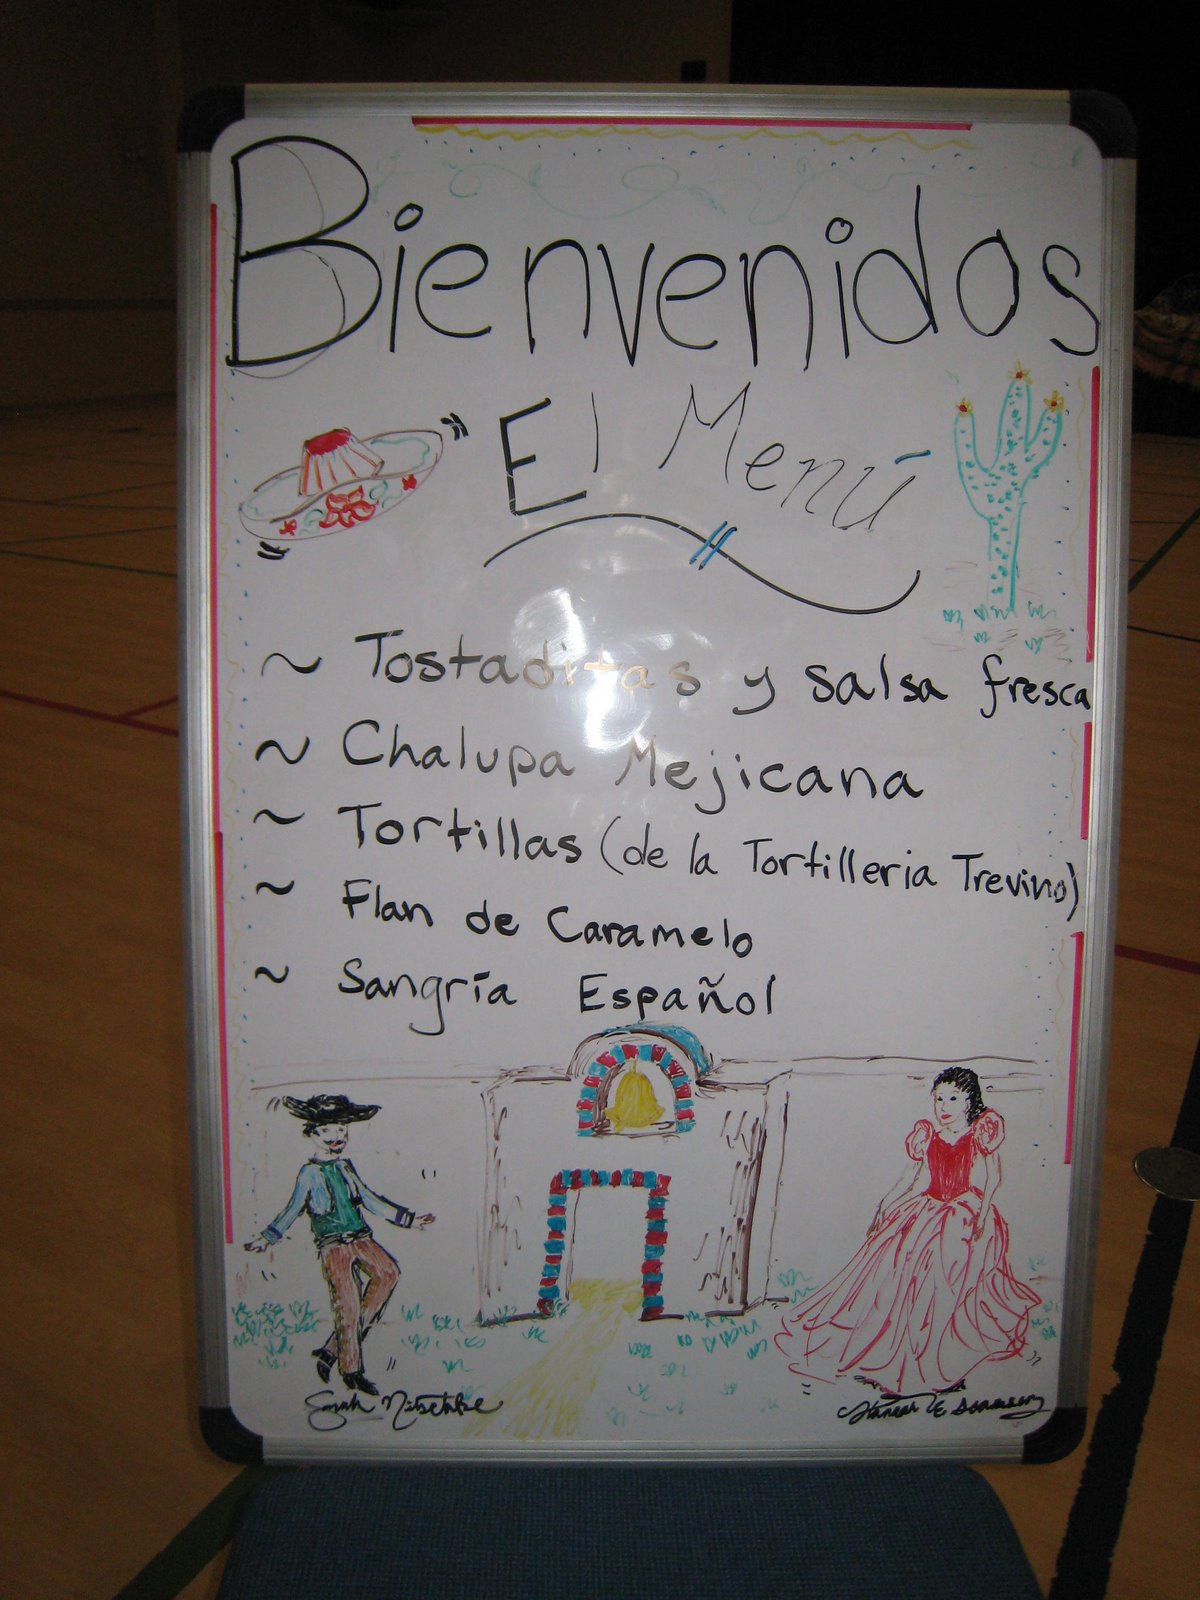 Bienvenidos
El Menú
~ Tostaditas y salsa fresca
~ Chalupa Mejicana
~ Tortillas (de la Tortilleria Trevino)
~ Flan de Caramelo
~ Sangría Español
Sarah